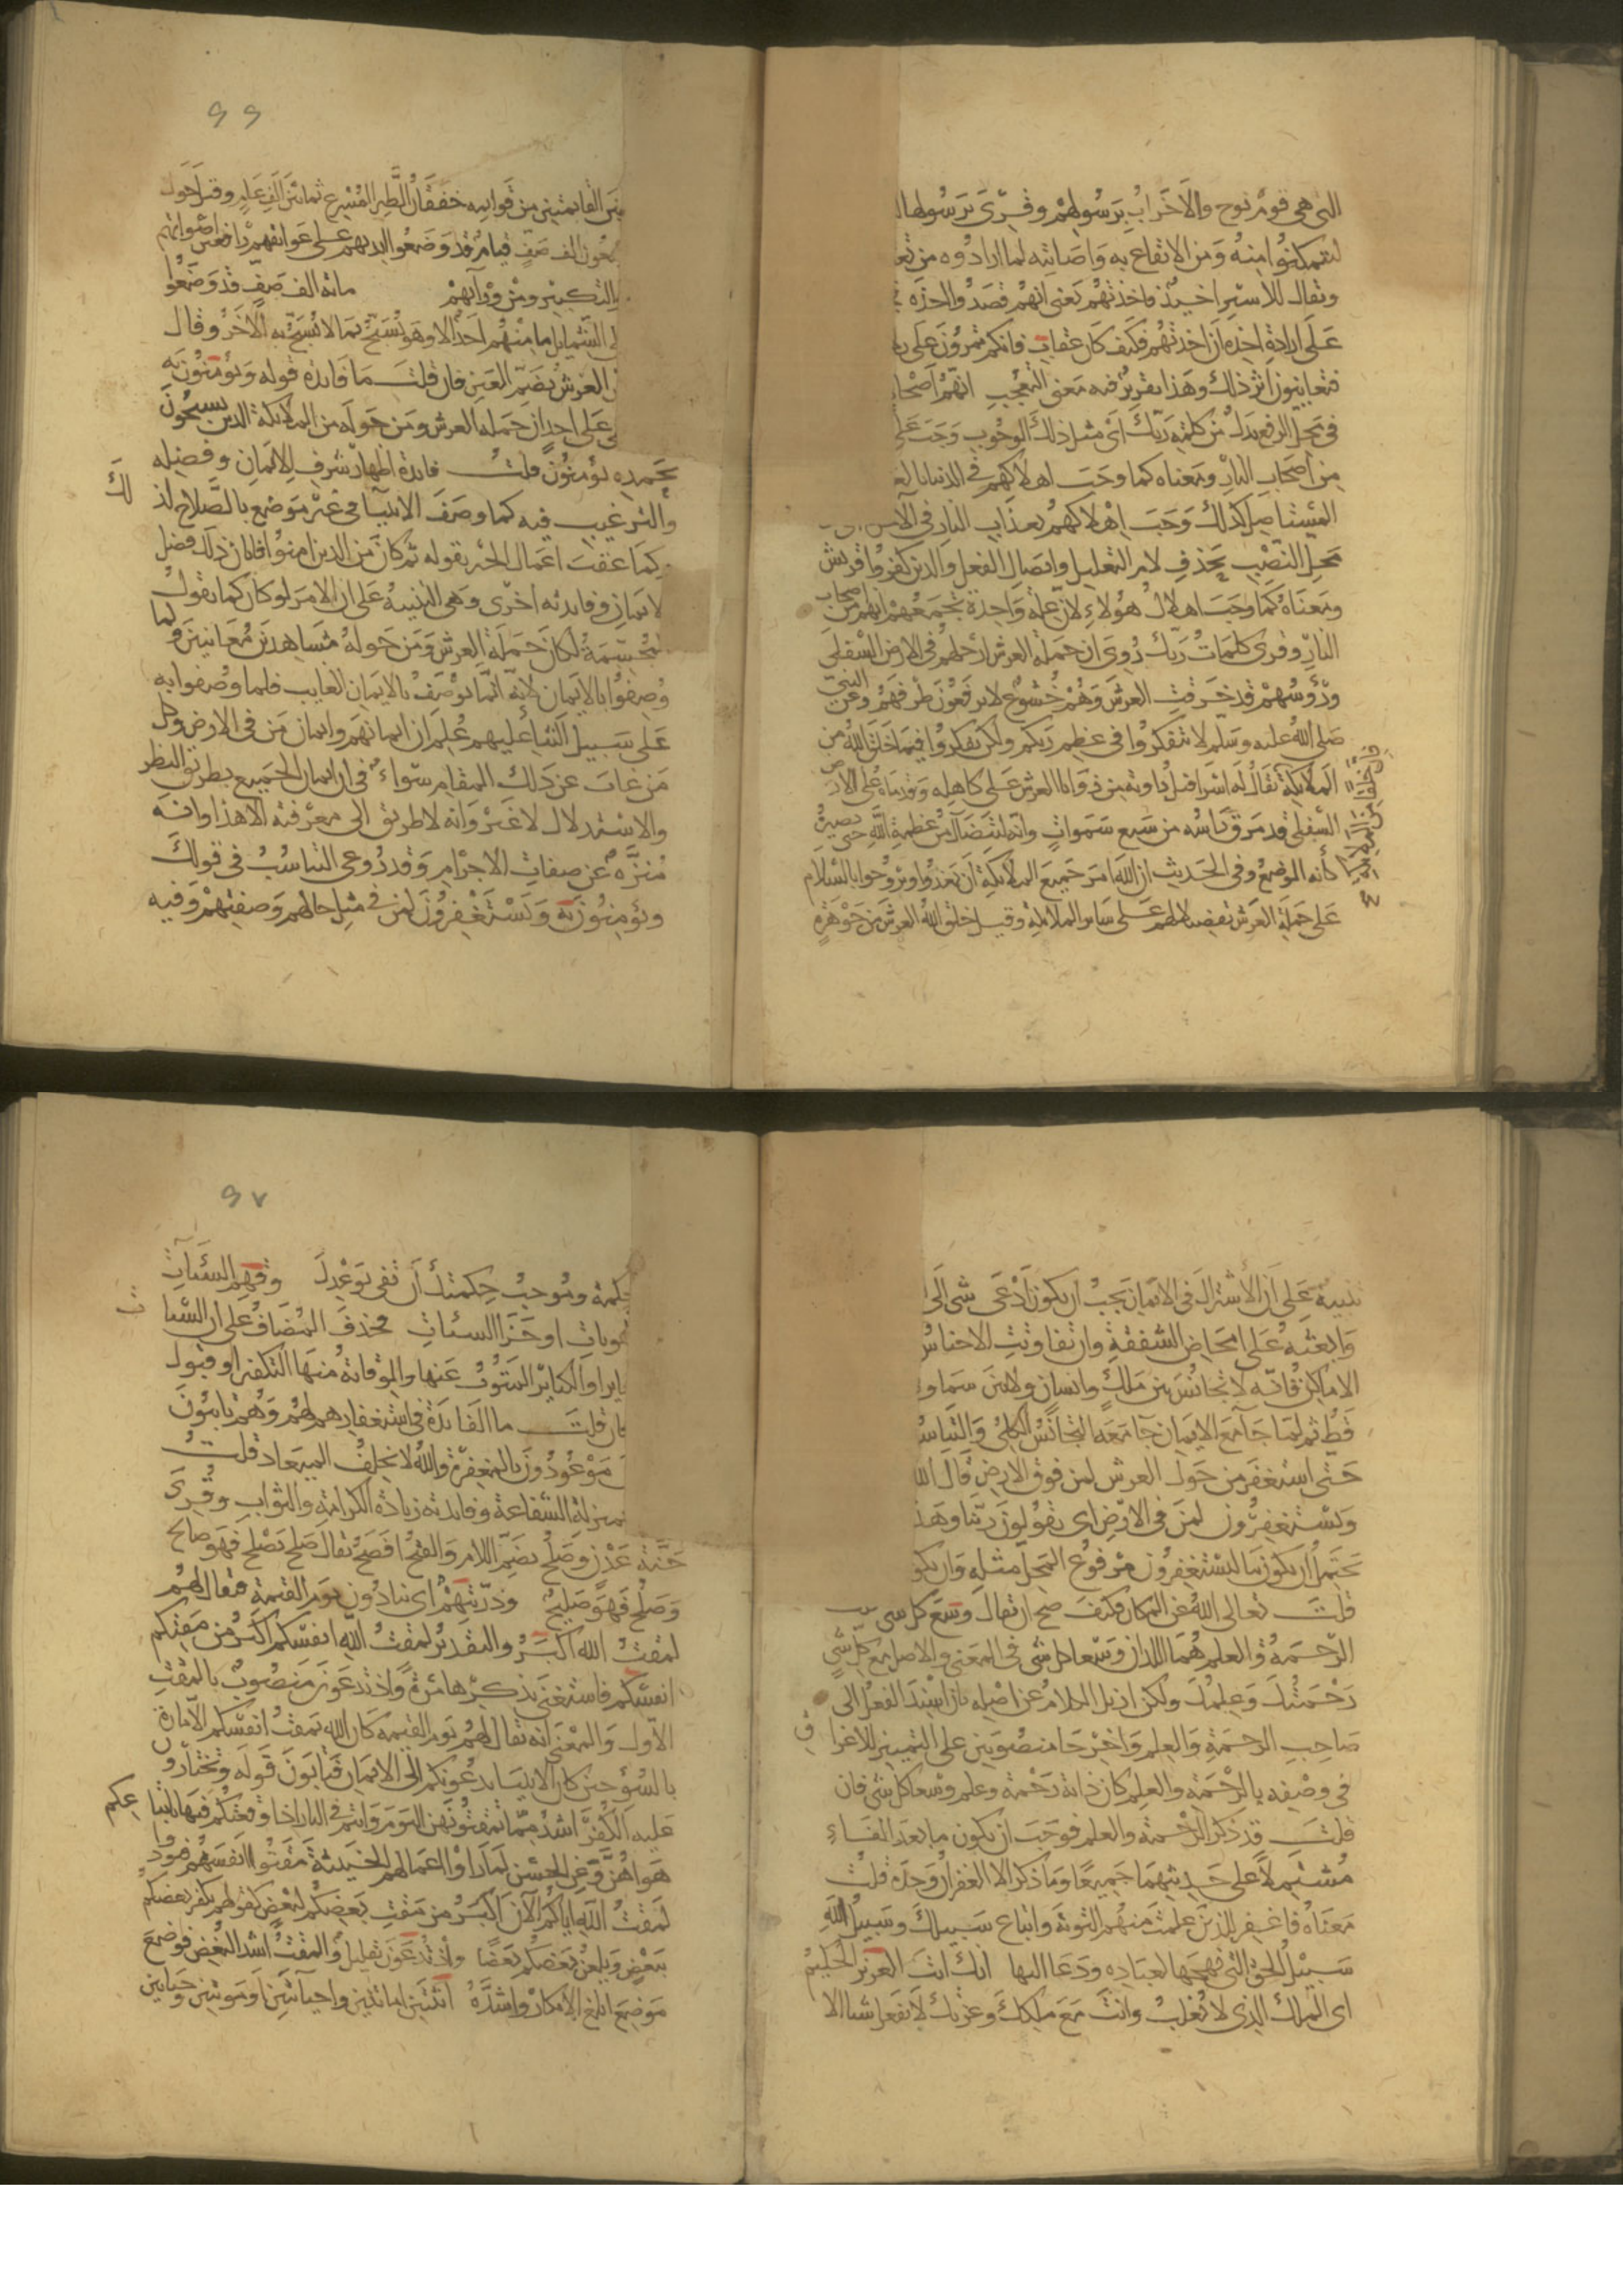 التى هى قوم نوح والاخزاب برسولهم وقرى برسولها
ليتمكنوا منه ومن الايقاع به واصابته لما ارادوه من تعذ
ويقال للاسير اخيذ فاخذتهم يعنى انهم قصدوا اخذه
على ارادة اخذه ان اخذتهم فكيف كان عقاب فانكم تمرون على
فتعاينون اثر ذلك وهذا تقرير فيه معنى التعجيب انهم اصحا
فى محل الرفع بدل من كلمة ربك اى مثل ذلك الوجوب وجب على
من اصحاب النار ومعناه كما وجب اهلاكهم فى الدنيا بالعذ
المستاصل كذلك وجب اهلاكهم بعذاب النار فى الاخرة
محل النصب بحذف لام التعليل وايصال الفعل والذين كفروا قريش
ومعناه كما وجب اهلاك هؤلاء لان علة واحدة تجمعهم انهم من اصحاب
النار وقرى كلمات ربك روى ان حملة العرش ارجلهم فى الارض السفلى
ورؤسهم قد خرقت العرش وهم خشوع لا يرفعون طرفهم وعن النبى
صلى الله عليه وسلم لا تتفكروا فى عظم ربكم ولكن تفكروا فيما خلق الله من
الملائكة يقال له اسرافيل زاوية من زوايا العرش على كاهله وقدماه على الارض
السفلى قد مرق راسه من سبع سموات وانه ليتضاءل من عظمة الله حتى يصير
كانه الوضع وفى الحديث ان الله امر جميع الملائكة ان يغدوا ويروحوا بالسلام
على حملة العرش تفضيلا لهم على سائر الملائكة وقيل خلق الله العرش من جوهرة
٩٩
بين القائمتين من قوائمه خفقان الطير المسرع ثمانين الف عام وقيل حول
سبعون الف صف قيام قد وضعوا ايديهم على عواتقهم رافعين اصواتهم
بالتكبير ومن ورائهم مائة الف صف قد وضعوا
على الشمايل ما منهم احد الا وهو يسبح بما لا يسبح به الاخر وقال
العرش بضم العين فان قلت ما فايدة قوله ويؤمنون به
على احد ان حملة العرش ومن حوله من الملائكة الذين يسبحون
بحمده يؤمنون قلت فايدة اظهار شرف الايمان وفضله
والترغيب فيه كما وصف الانبيا فى غير موضع بالصلاح لذلك
وكما عقب اعمال الخير بقوله ثم كان من الذين امنوا فابان ذلك فضل
الايمان وفايدته اخرى وهى التنبيه على ان الامر لو كان كما تقول
المجسمة لكان حملة العرش ومن حوله مشاهدين معاينين ولما
وصفوا بالايمان لانه انما يوصف بالايمان الغايب فلما وصفوا به
على سبيل الثنا عليهم علم ان ايمانهم وايمان من فى الارض وكل
من غاب عن ذلك المقام سواء فى ان ايمان الجميع بطريق النظر
والاستدلال لا غير وانه لا طريق الى معرفته الا هذا وانه
منزه عن صفات الاجرام وقد روعى التناسب فى قوله
ويؤمنون به ويستغفرون لمن فى مثل حالهم وصفتهم وفيه
تنبيه على ان الاشتراك فى الايمان يجب ان يكون ادعى شى الى
وابعثه على امحاض الشفقة وان تفاوتت الاجناس
الاماكن فانه لا تجانس بين ملك وانسان ولا بين سماو
قط ثم لما جامع الايمان جا معه التجانس الكلى والتناس
حتى استغفر من حول العرش لمن فوق الارض قال الله
ويستغفرون لمن فى الارض اى يقولون ربنا وهذ
يحتمل ان يكون بيانا ليستغفرون مرفوع المحل مثله وان يكو
قلت تعالى الله عن المكان فكيف صح ان يقال وسع كل شى
الرحمة والعلم هما اللذان وسعا كل شى فى المعنى والاصل وسع كل شى
رحمتك وعلمك ولكن ازيل الكلام عن اصله بان اسند الفعل الى
صاحب الرحمة والعلم واخرجا منصوبين على التمييز للاغراق
فى وصفه بالرحمة والعلم كان ذاته رحمة وعلم وسعا كل شى فان
قلت قد ذكر الرحمة والعلم فوجب ان يكون ما بعد الفاء
مشتملا على حديثهما جميعا وما ذكر الا الغفران وحده قلت
معناه فاغفر للذين علمت منهم التوبة واتباع سبيلك وسبيل الله
سبيل الحق التى نهجها لعباده ودعا اليها انك انت العزيز الحكيم
اى الملك الذى لا يغلب وانت مع ملكك وعزتك لا تفعل شيا الا
٩٧
حكمة وموجب حكمتك ان تفى بوعدك وقهم السيئات
عقوبات او جزا السيئات فحذف المضاف على ان السيئات
الصغاير او الكباير المتوب عنها والوقاية منها التكفير او قبول
فان قلت ما الفايدة فى استغفارهم لهم وهم تايبون
موعودون بالمغفرة والله لا يخلف الميعاد قلت
بمنزلة الشفاعة وفايدته زيادة الكرامة والثواب وقرى
جنة عدن وصلح بضم اللام والفتح افصح يقال صلح يصلح فهو صالح
وصلح فهو صليح وذريتهم اى ينادون يوم القيمة فيقال لهم
لمقت الله اكبر والتقدير لمقت الله انفسكم اكبر من مقتكم
انفسكم فاستغنى بذكرها مرة واذ تدعون منصوب بالمقت
الاول والمعنى انه يقال لهم يوم القيمة كان الله يمقت انفسكم الامارة
بالسؤ حين كان الانبيا يدعونكم الى الايمان فتابون قوله وتختارو
عليه الكفر اشد مما تمقتونهن اليوم وانتم فى النار اذا وقعتم فيها باتباعكم
هواهن وعن الحسن لما راوا اعمالهم الخبيثة مقتوا انفسهم فنودوا
لمقت الله اياكم الان اكبر من مقت بعضكم لبعض كقولهم يكفر بعضكم
ببعض ويلعن بعضكم بعضا واذ تدعون تعليل والمقت اشد البغض فوضع
موضع ابلغ الانكار واشده اثنتين اماتتين واحياءتين او موتتين وحياتين